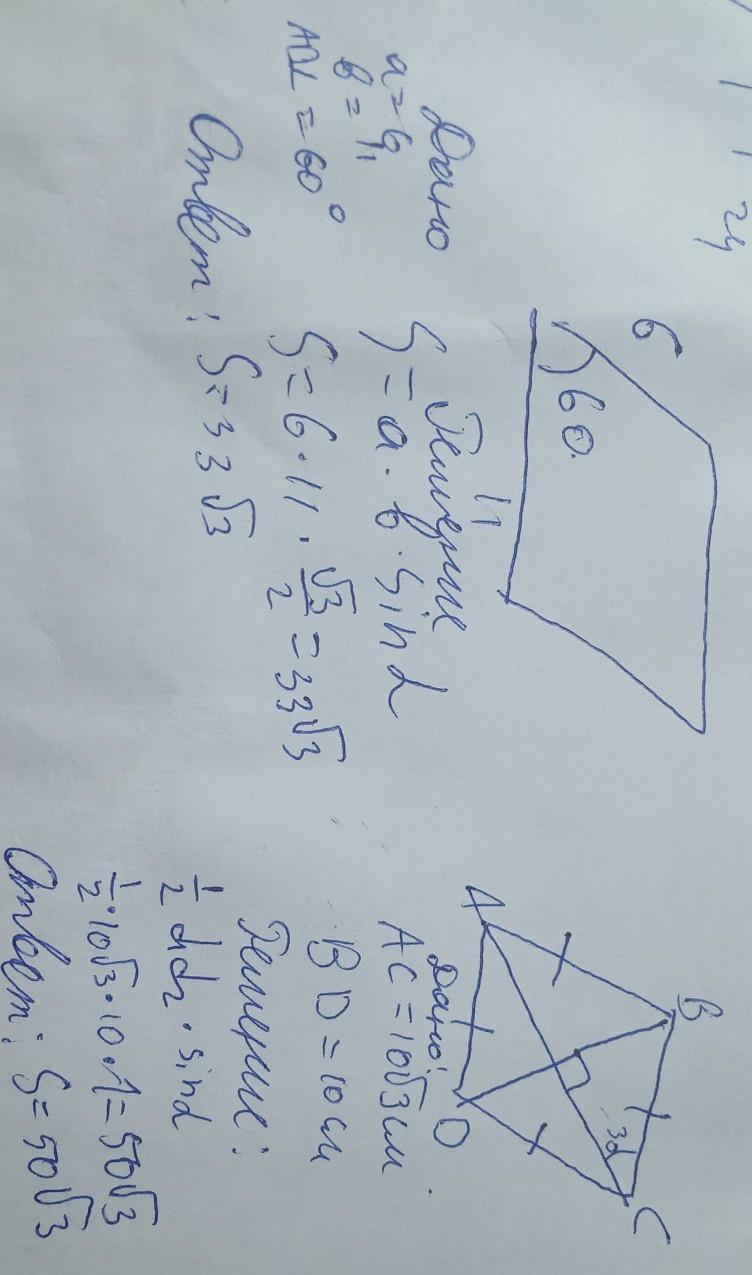 24
6
60.
11
Дано
a=6
b=11
=60°
Решение
S=a·b·sinα
S=6·11·√3/2=33√3
Ответ: S=33√3
B
A
C
D
Дано:
AC=10√3см.
BD=10см
Решение:
1/2 d d₂·sinα
1/2·10√3·10·1=50√3
Ответ: S=50√3